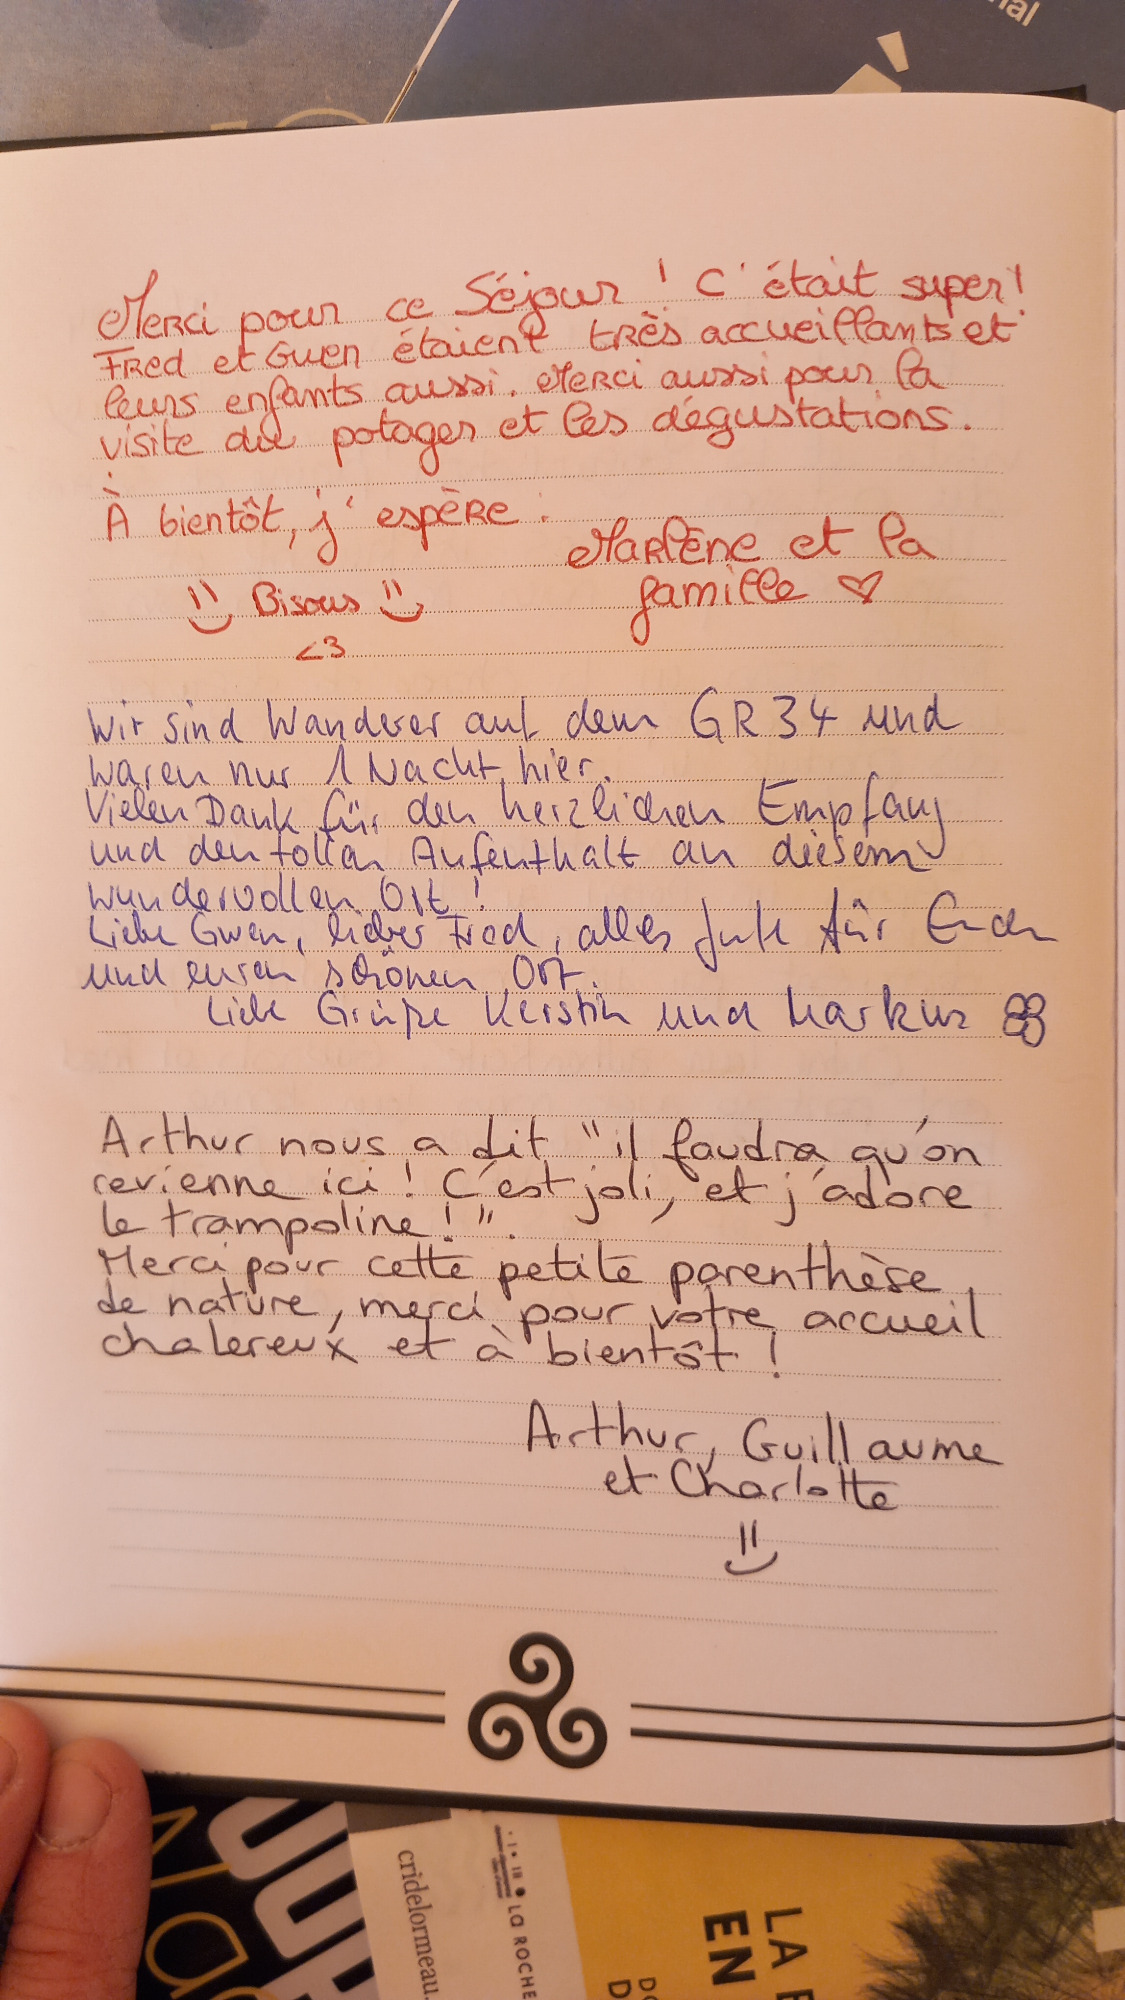 nal
Merci pour ce Séjour ! C'était super !
Fred et Gwen étaient très accueillants et
leurs enfants aussi. Merci aussi pour la
visite du potager et les dégustations.
À bientôt, j'espère.
Marlène et la
famille ♡
Bisous
<3
Wir sind Wanderer auf dem GR34 und
waren nur 1 Nacht hier.
Vielen Dank für den herzlichen Empfang
und den tollen Aufenthalt an diesem
wundervollen Ort !
Liebe Gwen, lieber Fred, alles Gute für Euch
und euren schönen Ort.
Liebe Grüße Kerstin und Markus
Arthur nous a dit "il faudra qu'on
revienne ici ! C'est joli, et j'adore
le trampoline !".
Merci pour cette petite parenthèse
de nature, merci pour votre accueil
chalereux et à bientôt !
Arthur, Guillaume
et Charlotte
cridelormeau.
LA ROCHE
LA
EN